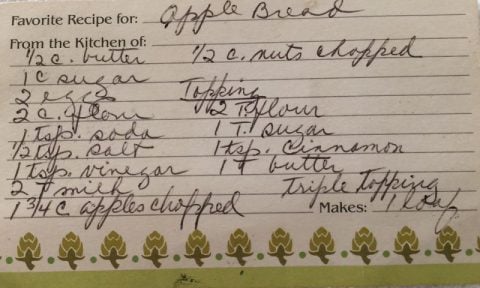 Favorite Recipe for: Apple Bread
From the Kitchen of:
1/2 c. butter 1/2 c. nuts chopped
1 c sugar
2 eggs Topping
2 c. flour 2 T. flour
1 tsp. soda 1 T. sugar
1/2 tsp. salt 1 tsp. cinnamon
1 tsp. vinegar 1 T butter
2 T milk triple topping
1 3/4 c apples chopped Makes: 1 loaf